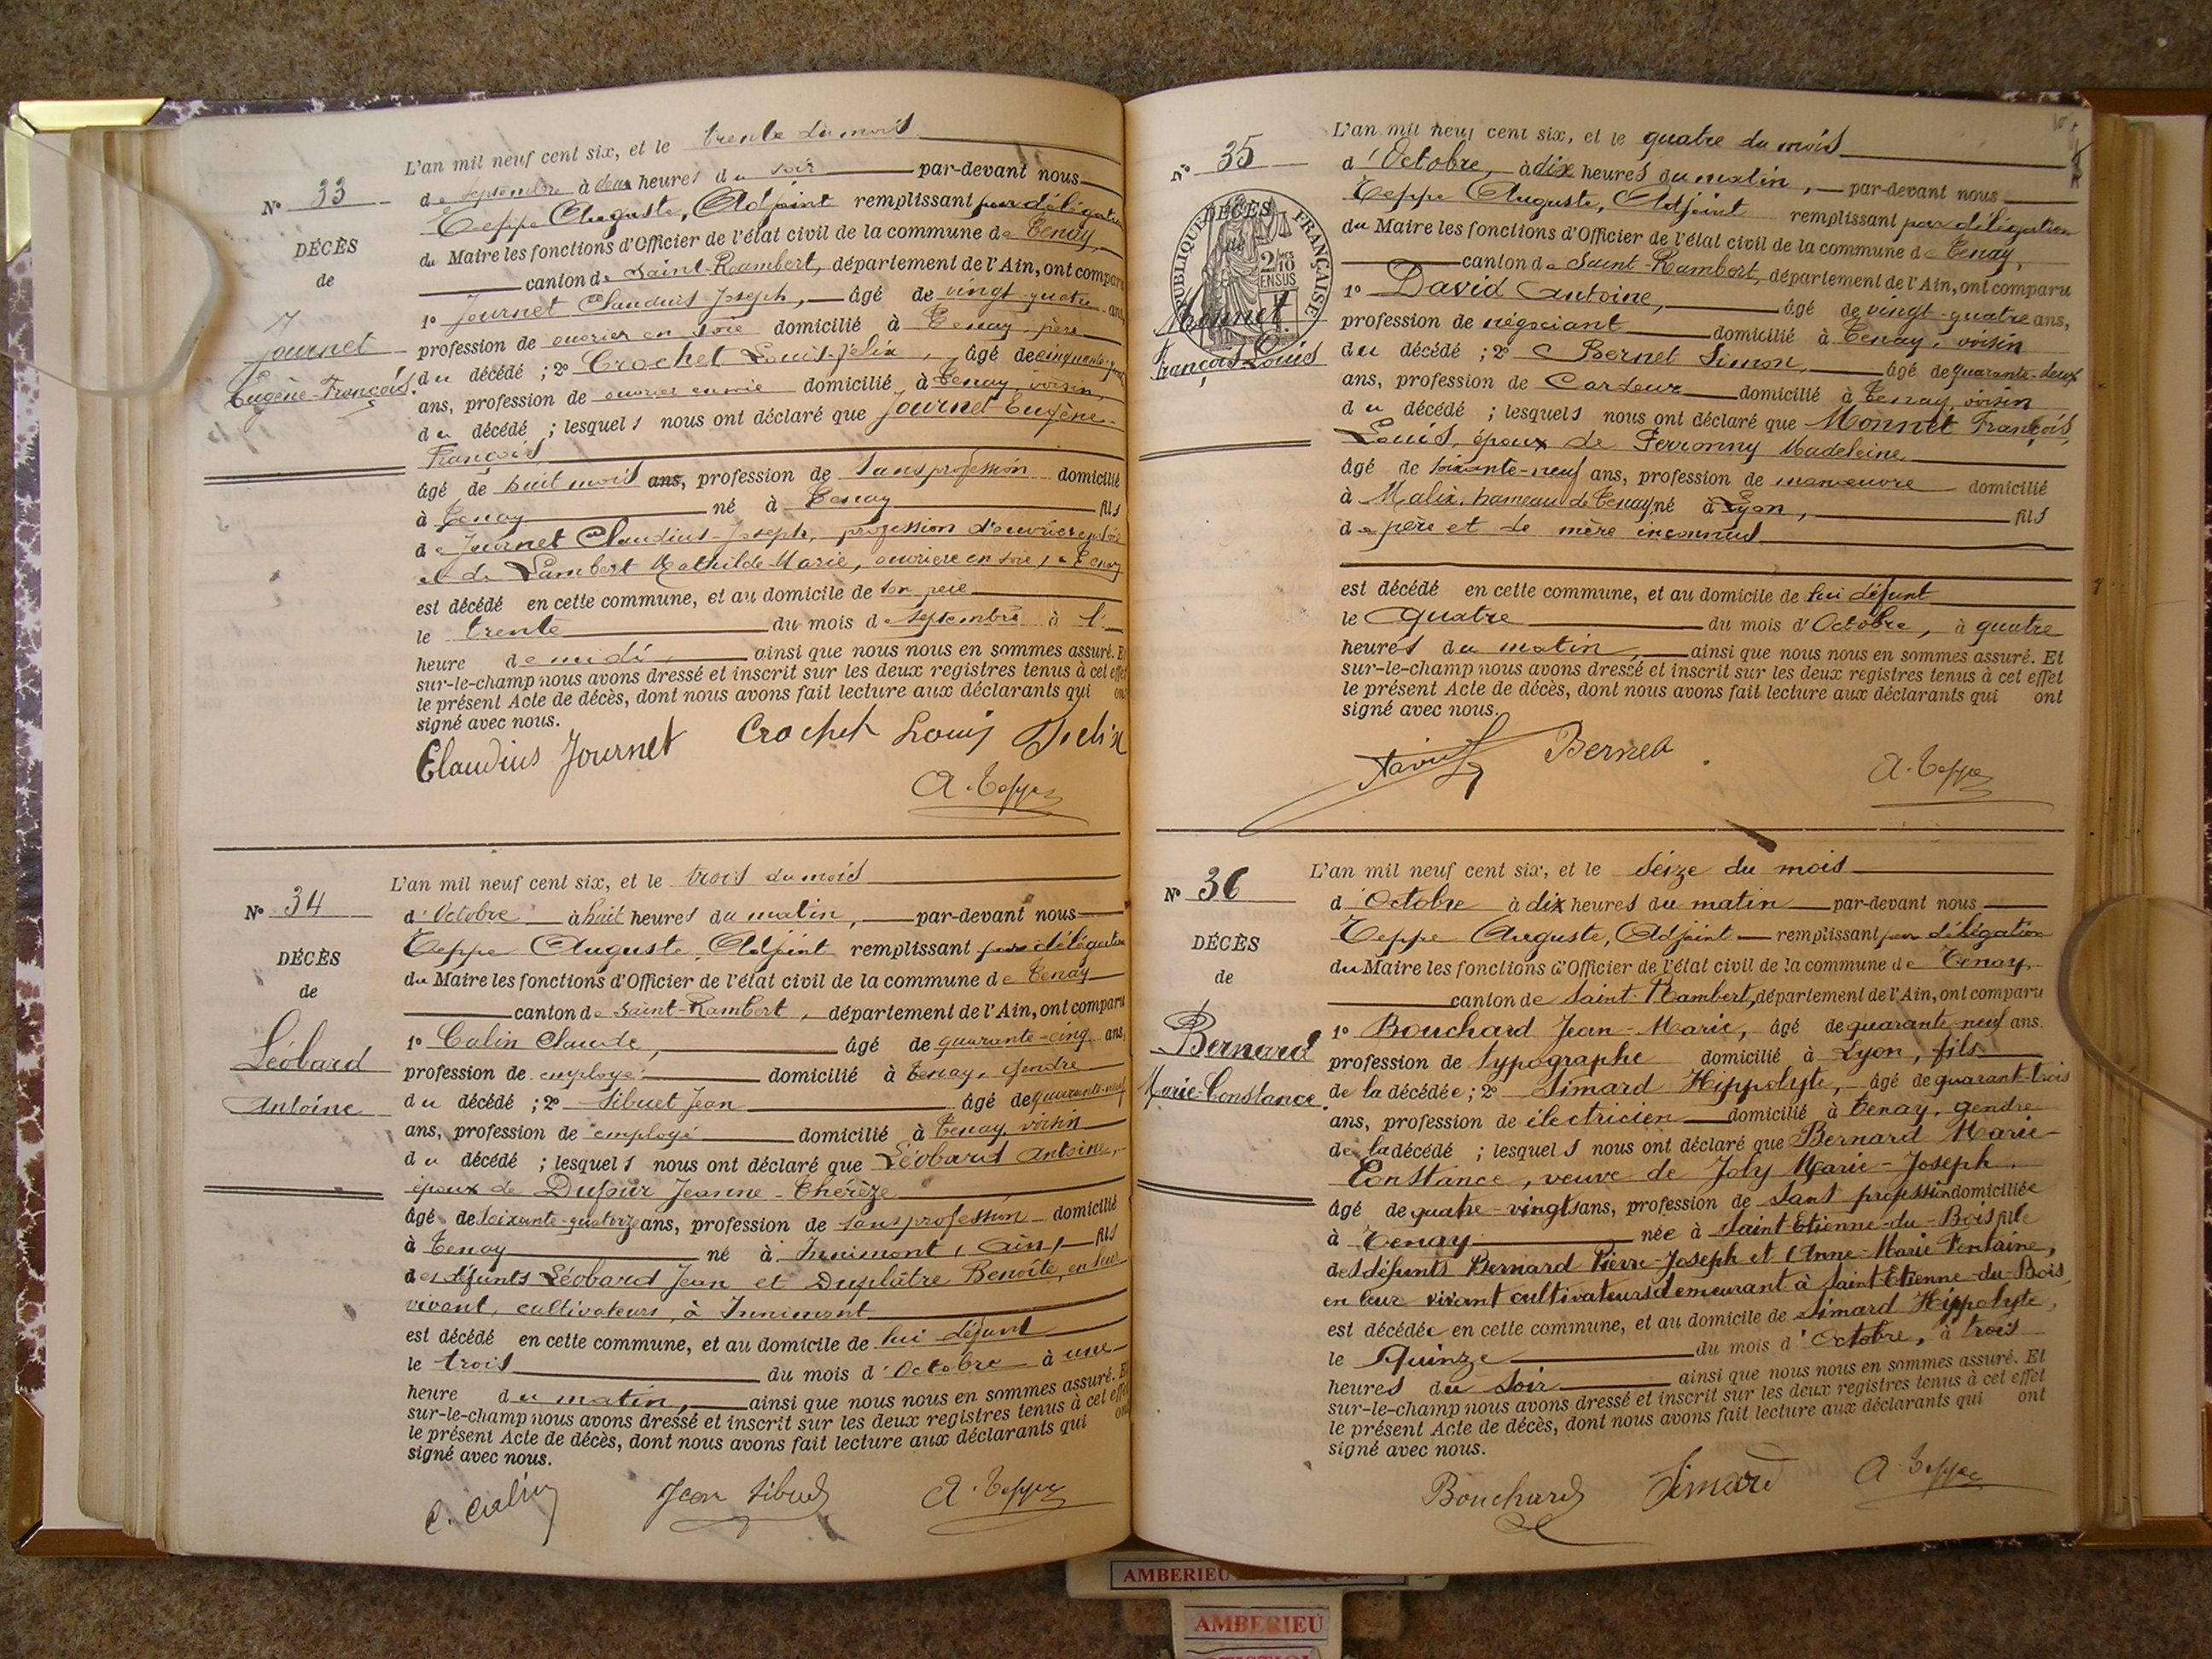 L'an mil neuf cent six, et le trente du mois
N° 33
de septembre à deux heures du soir par-devant nous
Teppe Auguste, Adjoint remplissant par délégation
DÉCÈS
du Maire les fonctions d'Officier de l'état civil de la commune de Tenay,
de
canton de Saint-Rambert, département de l'Ain, ont comparu
1° Journet Claudius-Joseph, âgé de vingt-quatre ans,
Journet
profession de ouvrier en soie domicilié à Tenay, père
Eugène-François.
du décédé ; 2° Crochet Louis-Félix, âgé de cinquante
ans, profession de ouvrier en soie domicilié à Tenay, voisin,
du décédé ; lesquels nous ont déclaré que Journet Eugène-
François,
âgé de huit mois ans, profession de sans profession domicilié
à Tenay né à Tenay fils
de Journet Claudius-Joseph, profession d'ouvrier en soie
et de Lambert Mathilde-Marie, ouvrière en soie, à Tenay
est décédé en cette commune, et au domicile de son père
le trente du mois de septembre à 1
heure de midi, ainsi que nous nous en sommes assuré. Et
sur-le-champ nous avons dressé et inscrit sur les deux registres tenus à cet effet
le présent Acte de décès, dont nous avons fait lecture aux déclarants qui ont
signé avec nous.
Claudius Journet Crochet Louis Felix
A. Teppe
L'an mil neuf cent six, et le trois du mois
N° 34
d'Octobre à huit heures du matin, par-devant nous
Teppe Auguste, Adjoint remplissant par délégation
DÉCÈS
du Maire les fonctions d'Officier de l'état civil de la commune de Tenay
de
canton de Saint-Rambert, département de l'Ain, ont comparu
1° Calin Claude, âgé de quarante-cinq ans,
Léobard
profession de employé domicilié à Tenay, gendre
Antoine
du décédé ; 2° Sibuet Jean âgé de quarante-neuf
ans, profession de employé domicilié à Tenay, voisin
du décédé ; lesquels nous ont déclaré que Léobard Antoine,
époux de Dufour Jeanne-Thérèze
âgé de soixante-quatorze ans, profession de sans profession domicilié
à Tenay né à Innimont (Ain) fils
des défunts Léobard Jean et Duplâtre Benoîte, en leur
vivant, cultivateurs, à Innimont
est décédé en cette commune, et au domicile de lui défunt
le trois du mois d'Octobre à une
heure du matin, ainsi que nous nous en sommes assuré. Et
sur-le-champ nous avons dressé et inscrit sur les deux registres tenus à cet effet
le présent Acte de décès, dont nous avons fait lecture aux déclarants qui ont
signé avec nous.
C. Calin Jean Sibuet A. Teppe
L'an mil neuf cent six, et le quatre du mois
N° 35
d'Octobre, à dix heures du matin, par-devant nous
Teppe Auguste, Adjoint remplissant par délégation
du Maire les fonctions d'Officier de l'état civil de la commune de Tenay,
RÉPUBLIQUE FRANÇAISE
DÉCÈS
de
2/10
EN SUS
canton de Saint-Rambert, département de l'Ain, ont comparu
1° David Antoine, âgé de vingt-quatre ans,
Monnet
profession de négociant domicilié à Tenay, voisin
François-Louis
du décédé ; 2° Bernet Simon, âgé de quarante-deux
ans, profession de Cardeur domicilié à Tenay, voisin
du décédé ; lesquels nous ont déclaré que Monnet François,
Louis, époux de Ferronny Madeleine
âgé de soixante-neuf ans, profession de manœuvre domicilié
à Malix, hameau de Tenay né à Lyon, fils
de père et de mère inconnus
est décédé en cette commune, et au domicile de lui défunt
le Quatre du mois d'Octobre, à quatre
heures du matin, ainsi que nous nous en sommes assuré. Et
sur-le-champ nous avons dressé et inscrit sur les deux registres tenus à cet effet
le présent Acte de décès, dont nous avons fait lecture aux déclarants qui ont
signé avec nous.
David Bernet A. Teppe
L'an mil neuf cent six, et le Seize du mois
N° 36
d'Octobre à dix heures du matin par-devant nous
Teppe Auguste, Adjoint remplissant par délégation
DÉCÈS
du Maire les fonctions d'Officier de l'état civil de la commune de Tenay
de
canton de Saint-Rambert, département de l'Ain, ont comparu
1° Bouchard Jean-Marie, âgé de quarante-neuf ans.
Bernard
profession de typographe domicilié à Lyon, fils
Marie-Constance.
de la décédée ; 2° Simard Hippolyte, âgé de quarant-trois
ans, profession de électricien domicilié à Tenay, gendre
de la décédé ; lesquels nous ont déclaré que Bernard Marie-
Constance, veuve de Joly Marie-Joseph.
âgé de quatre-vingts ans, profession de sans profession domiciliée
à Tenay née à Saint-Etienne-du-Bois fille
des défunts Bernard Pierre-Joseph et Anne-Marie Fontaine,
en leur vivant cultivateurs demeurant à Saint-Etienne-du-Bois,
est décédée en cette commune, et au domicile de Simard Hippolyte,
le Quinze du mois d'Octobre, à trois
heures du soir ainsi que nous nous en sommes assuré. Et
sur-le-champ nous avons dressé et inscrit sur les deux registres tenus à cet effet
le présent Acte de décès, dont nous avons fait lecture aux déclarants qui ont
signé avec nous.
Bouchard Simard A. Teppe
AMBERIEU
AMBERIEU